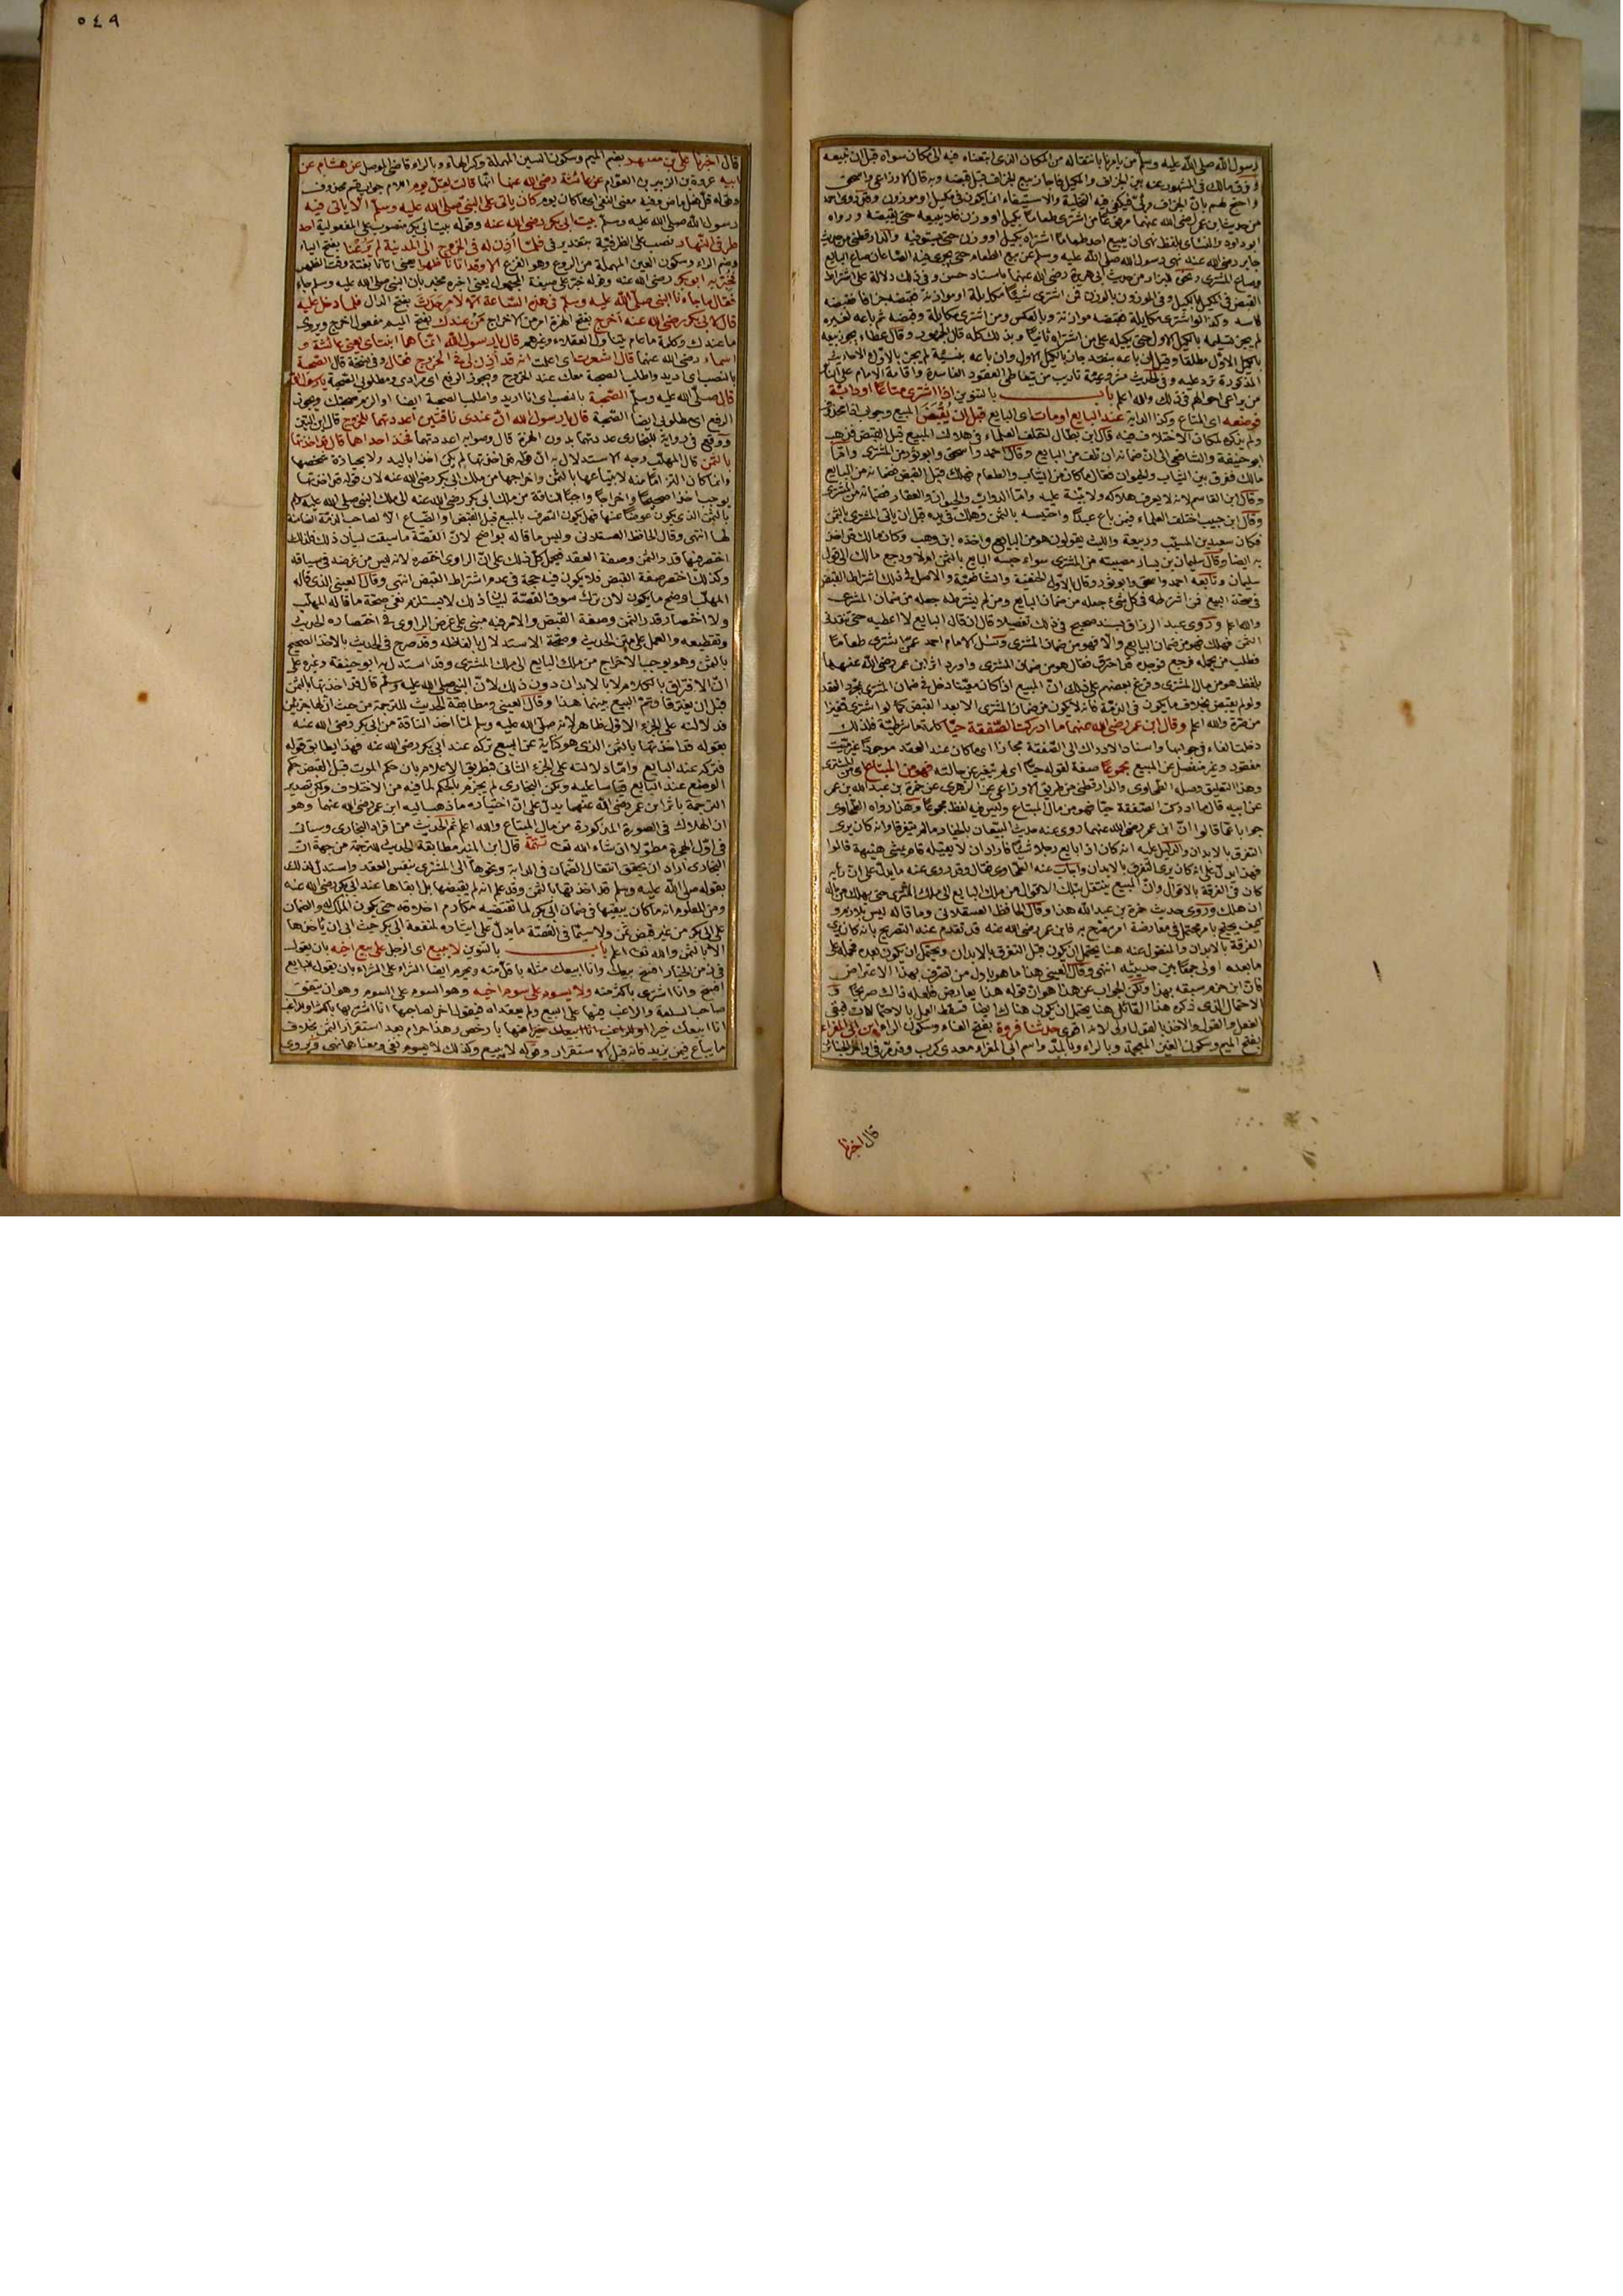 رسول الله صلى الله عليه وسلم من يامرنا بانتقاله من المكان الذي ابتعناه فيه الى مكان سواه قبل ان نبيعه
وفرق مالك في المشهور عنه بين الجزاف والمكيل فاجاز بيع الجزاف قبل قبضه وبه قال الاوزاعي واسحق
واحتج لهم بان الجزاف مرئي فيكفي فيه التخلية والاستيفاء انما يكون في مكيل او موزون وقد روى احمد
من حديث ابن عمر رضي الله عنهما مرفوعا من اشترى طعاما بكيل او وزن فلا يبيعه حتى يقبضه ورواه
ابو داود والنسائي بلفظ نهى ان يبيع احد طعاما اشتراه بكيل او وزن حتى يستوفيه والدارقطني من حديث
جابر رضي الله عنه نهى رسول الله صلى الله عليه وسلم عن بيع الطعام حتى يجري فيه الصاعان صاع البايع
وصاع المشتري ونحوه للبزار من حديث ابي هريرة رضي الله عنه باسناد حسن وفي ذلك دلالة على اشتراط
القبض في المكيل بالكيل وفي الموزون بالوزن فمن اشترى شيئا مكايلة او موازنة فقبضه جزافا فقبضه
فاسد وكذا لو اشترى مكايلة فقبضه موازنة وبالعكس ومن اشترى مكايلة وقبضه ثم باعه لغيره
لم يجز تسليمه بالكيل الاول حتى يكيله على من اشتراه ثانيا وبذلك كله قال الجمهور وقال عطاء يجوز بيعه
بالكيل الاول مطلقا وقيل ان باعه بنقد جاز بالكيل الاول وان باعه بنسيئة لم يجز بالاول والاحاديث
المذكورة ترد عليه وفي الحديث مشروعية تاديب من يتعاطى العقود الفاسدة واقامة الامام على الناس
من يراعي احوالهم في ذلك والله اعلم باب بالتنوين اذا اشترى متاعا او دابة
فوضعه اي المتاع وكذا الدابة عند البايع او مات اي البايع قبل ان يقبض المبيع وجواب اذا محذوف
ولم يذكره لمكان الاختلاف فيه قال ابن بطال اختلف العلماء في هلاك المبيع قبل القبض فذهب
ابو حنيفة والشافعي الى ان ضمانه ان تلف من البايع وقال احمد واسحق وابو ثور من المشتري واما
مالك ففرق بين الثياب والحيوان فقال ما كان من الثياب والطعام فهلك قبل القبض فضمانه من البايع
وقال ابن القاسم لانه لا يعرف هلاكه ولا بينة عليه واما الدواب والحيوان والعقار فضمانه من المشتري
وقال ابن حبيب اختلف العلماء فيمن باع عبدا واحتبسه بالثمن وهلك في يده قبل ان ياتي المشتري بالثمن
فكان سعيد بن المسيب وربيعة والليث يقولون هو من البايع واخذه ابن وهب وكان مالك قد اخذ
به ايضا وقال سليمان بن يسار مصيبته من المشتري سواء حبسه البايع بالثمن ام لا ورجع مالك الى قول
سليمان وتابعه احمد واسحق وابو ثور وقال بالاول الحنفية والشافعية والاصل في ذلك اشتراط القبض
في صحة البيع فمن اشترطه في كل شيء جعله من ضمان البايع ومن لم يشترطه جعله من ضمان المشتري
والله اعلم وروى عبد الرزاق بسند صحيح في ذلك تفصيلا قال ان قال البايع لا اعطيه حتى تنقدني
الثمن فهلك فهو من ضمان البايع والا فهو من ضمان المشتري وسئل الامام احمد عمن اشترى طعاما
فطلب من يحمله فرجع فوجده قد احترق فقال هو من ضمان المشتري واورد اثر ابن عمر رضي الله عنهما
بلفظ هو من مال المشتري وفرع بعضهم على ذلك ان المبيع اذا كان معينا دخل في ضمان المشتري بمجرد العقد
ولو لم يقبض بخلاف ما يكون في الذمة فانه لا يكون من ضمان المشتري الا بعد القبض كما لو اشترى قفيزا
من صبرة والله اعلم وقال ابن عمر رضي الله عنهما ما ادركت الصفقة حيا كلمة ما شرطية فلذلك
دخلت الفاء في جوابها واسناد الادراك الى الصفقة مجاز اي ما كان عند العقد موجودا غير ميت
مفقود وغير منفصل عن المبيع مجموعا صفة لقوله حيا اي لم يتغير عن حالته فهو من المبتاع اي من المشتري
وهذا التعليق وصله الطحاوي والدارقطني من طريق الاوزاعي عن الزهري عن حمزة بن عبد الله بن عمر
عن ابيه قال ما ادركت الصفقة حيا فهو من مال المبتاع وليس فيه لفظ مجموعا وهذا رواه الطحاوي
جوابا عما قالوا ان ابن عمر رضي الله عنهما روى عنه حديث البيعان بالخيار ما لم يتفرقا وانه كان يرى
التفرق بالابدان والدليل عليه انه كان اذا بايع رجلا شيئا فاراد ان لا يقيله قام يمشي هنيهة قالوا
فهذا يدل على انه كان يرى التفرق بالابدان واجاب عنه الطحاوي فقال وقد روى عنه ما يدل على ان رايه
كان في الفرقة بالاقوال وان المبيع ينتقل بتلك الاقوال من ملك البايع الى ملك المشتري حتى يهلك من ماله
ان هلك وروى حديث حمزة بن عبد الله هذا وقال الحافظ العسقلاني وما قاله ليس بلازم و
كيف يحتج بامر محتمل في معارضة امر مصرح به فابن عمر رضي الله عنه قد تقدم عنه التصريح بانه كان يرى
الفرقة بالابدان والمنقول عنه هنا يحتمل ان يكون قبل التفرق بالابدان ويحتمل ان يكون بعده فحمله على
ما بعده اولى جمعا بين حديثيه انتهى وقال العيني هنا ما هو باول من تصرف بهذا الاعتراض
فان ابن حزم سبقه بهذا ولكن الجواب عن هذا هو ان قوله هنا يعارض فعله ذاك صريحا و
الاحتمال الذي ذكره هذا القائل هنا يحتمل ان يكون هناك ايضا فسقط العمل بالاحتمالات فبقي
الفعل والقول والاخذ بالقول اولى لانه اقوى حدثنا فروة بفتح الفاء وسكون الراء ابن ابي المغراء
بفتح الميم وسكون الغين المعجمة وبالراء وبالمد واسم ابي المغراء معدي كرب وقد مر في اواخر الجنائز
قال اخبرنا
٥٤٩
قال اخبرنا علي بن مسهر بضم الميم وسكون السين المهملة وكسر الهاء وبالراء قاضي الموصل عن هشام عن
ابيه عروة بن الزبير بن العوام عن عائشة رضي الله عنها انها قالت لقل يوم اللام جواب قسم محذوف
وقوله قل فعل ماض وفيه معنى النفي اي ما كان يوم كان ياتي على النبي صلى الله عليه وسلم الا ياتي فيه
رسول الله صلى الله عليه وسلم بيت ابي بكر رضي الله عنه وقوله بيت ابي بكر منصوب على المفعولية احد
طرفي النهار نصب على الظرفية بتقدير في فلما اذن له في الخروج الى المدينة لم يرعنا بفتح الياء
وضم الراء وسكون العين المهملة من الروع وهو الفزع الا وقد اتانا ظهرا يعني اتانا بغتة وقت الظهر
فخبر به ابو بكر رضي الله عنه وقوله خبر على صيغة المجهول يعني اخبره مخبر بان النبي صلى الله عليه وسلم جاء
فقال ما جاءنا النبي صلى الله عليه وسلم في هذه الساعة الا لامر حدث بفتح الدال فلما دخل عليه
قال لابي بكر رضي الله عنه اخرج بفتح الهمزة امر من الاخراج من عندك بفتح الميم مفعول اخرج ويروى
ما عندك وكلمة ما عام يتناول العقلاء وغيرهم قال يا رسول الله انما هما ابنتاي يعني عائشة و
اسماء رضي الله عنهما قال اشعرت اي اعلمت انه قد اذن لي في الخروج فقال وفي نسخة قال الصحبة
بالنصب اي اريد واطلب الصحبة معك عند الخروج ويجوز الرفع اي مرادي ومطلوبي الصحبة يا رسول الله
قال صلى الله عليه وسلم الصحبة بالنصب اي انا اريد واطلب الصحبة ايضا او الزم صحبتك ويجوز
الرفع اي مطلوبي ايضا الصحبة قال يا رسول الله ان عندي ناقتين اعددتهما للخروج قال ابن التين
ووقع في رواية للبخاري عددتهما بدون الهمزة قال وصوابه اعددتهما فخذ احداهما قال قد اخذتها
بالثمن قال المهلب وجه الاستدلال به ان قوله قد اخذتها لم يكن اخذا باليد ولا بحيازة شخصها
وانما كان التزاما منه لابتياعها بالثمن واخراجها من ملك ابي بكر رضي الله عنه لان قوله قد اخذتها
يوجب اخذا صحيحا واخراجا واجبا للناقة من ملك ابي بكر رضي الله عنه الى ملك النبي صلى الله عليه وسلم
بالثمن الذي يكون عوضا عنها فهل يكون التصرف بالمبيع قبل القبض او الضياع الا لصاحب الذمة الضامنة
لها انتهى وقال الحافظ العسقلاني وليس ما قاله بواضح لان القصة ما سيقت لبيان ذلك فلذلك
اختصر فيها قدر الثمن وصفة العقد فيحمل كل ذلك على ان الراوي اختصره لانه ليس من غرضه في سياقه
وكذلك اختصر صفة القبض فلا يكون فيه حجة في عدم اشتراط القبض انتهى وقال العيني الذي قاله
المهلب اوضح ما يكون لان ترك سوق القصة لبيان ذلك لا يستلزم نفي صحة ما قاله المهلب
ولا اختصار قدر الثمن وصفة القبض والامر فيه مبني على غرض الراوي في اختصاره الحديث
وتقطيعه والعمل على متن الحديث وصحة الاستدلال بالفاظه وقد صرح في الحديث بالاخذ الصحيح
بالثمن وهو يوجب الاخراج من ملك البايع الى ملك المشتري وقد استدل به ابو حنيفة وغيره على
ان الافتراق بالكلام لا بالابدان دون ذلك لان النبي صلى الله عليه وسلم قال قد اخذتها بالثمن
قبل ان يفترقا وتم البيع بينهما هذا وقال العيني ومطابقة الحديث للترجمة من حيث ان لها جزئين
فدلالته على الجزء الاول ظاهر لانه صلى الله عليه وسلم لما اخذ الناقة من ابي بكر رضي الله عنه
بقوله قد اخذتها بالثمن الذي هو كناية عن البيع تركه عند ابي بكر رضي الله عنه فهذا يطابق قوله
فتركه عند البايع واما دلالته على الجزء الثاني فبطريق الاعلام بان حكم الموت قبل القبض حكم
الوضع عند البايع قياسا عليه ولكن البخاري لم يجزم بالحكم لما فيه من الاختلاف ولكن تصدير
الترجمة باثر ابن عمر رضي الله عنهما يدل على ان اختياره ما ذهب اليه ابن عمر رضي الله عنهما وهو
ان الهلاك في الصورة المذكورة من مال المبتاع والله اعلم ثم الحديث من افراد البخاري وسياتي
في اول الهجرة مطولا ان شاء الله تعالى تتمة قال ابن المنير مطابقة الحديث للترجمة من جهة ان
البخاري اراد ان يحقق انتقال الضمان في الدابة ونحوها الى المشتري بنفس العقد واستدل لذلك
بقوله صلى الله عليه وسلم قد اخذتها بالثمن وقد علم انه لم يقبضها بل ابقاها عند ابي بكر رضي الله عنه
ومن المعلوم انه ما كان يبقيها في ضمان ابي بكر لما تقتضيه مكارم اخلاقه حتى يكون الملك له والضمان
على ابي بكر من غير قبض ثمن ولا سيما في القصة ما يدل على ايثاره لمنفعة ابي بكر حيث ابى ان ياخذها
الا بالثمن والله تعالى اعلم باب بالتنوين لا يبيع اي الرجل على بيع اخيه بان يقول
في زمن الخيار افسخ بيعك وانا ابيعك مثله باقل منه ويحرم ايضا الشراء على الشراء بان يقول للبايع
افسخ وانا اشتري باكثر منه ولا يسوم على سوم اخيه وهو السوم على السوم وهو ان يتفق
صاحب السلعة والراغب فيها على البيع ولم يعقداه فيقول اخر لصاحبها انا اشتريها باكثر او للراغب
انا ابيعك خيرا منها بارخص وهذا حرام بعد استقرار الثمن بخلاف
ما يباع فيمن يزيد فانه قبل الاستقرار وقوله لا يبيع وكذلك لا يسوم نفي ومعناهما نهي ويروى